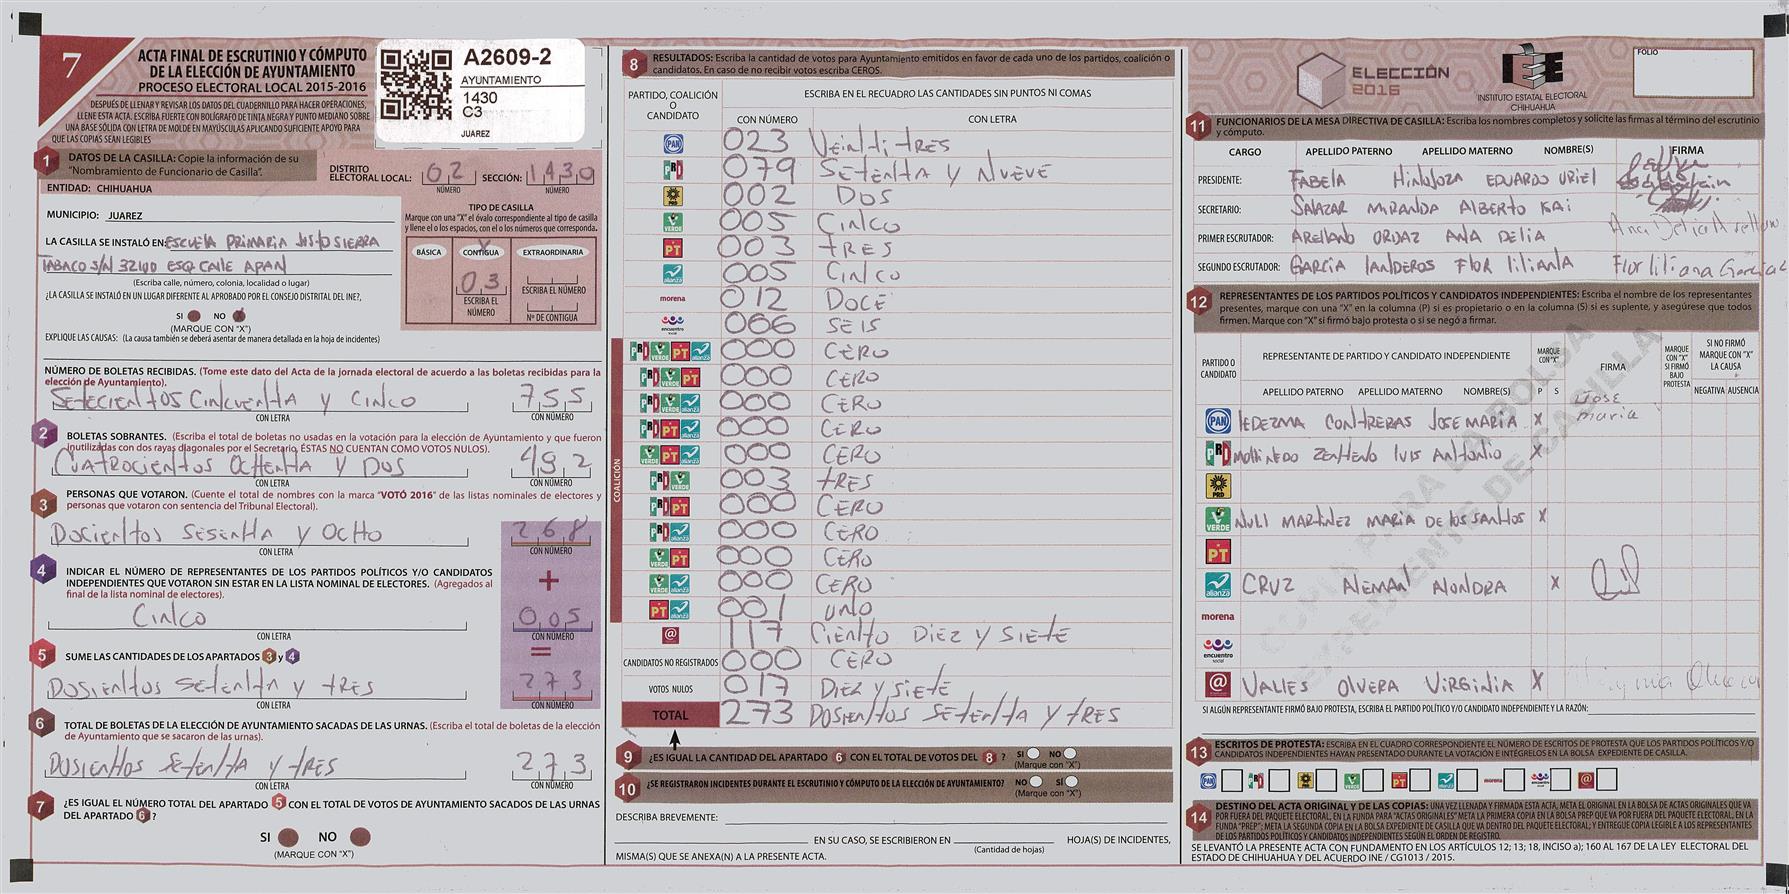 7
ACTA FINAL DE ESCRUTINIO Y CÓMPUTO
DE LA ELECCIÓN DE AYUNTAMIENTO
PROCESO ELECTORAL LOCAL 2015-2016
DESPUÉS DE LLENAR Y REVISAR LOS DATOS DEL CUADERNILLO PARA HACER OPERACIONES,
LLENE ESTA ACTA. ESCRIBA FUERTE CON BOLÍGRAFO DE TINTA NEGRA Y PUNTO MEDIANO SOBRE
UNA BASE SÓLIDA CON LETRA DE MOLDE EN MAYÚSCULAS APLICANDO SUFICIENTE APOYO PARA
QUE LAS COPIAS SEAN LEGIBLES
A2609-2
AYUNTAMIENTO
1430
C3
JUAREZ
1 DATOS DE LA CASILLA: Copie la información de su
"Nombramiento de Funcionario de Casilla".
DISTRITO ELECTORAL LOCAL: 02 NÚMERO SECCIÓN: 1430 NÚMERO
ENTIDAD: CHIHUAHUA
MUNICIPIO: JUAREZ
LA CASILLA SE INSTALÓ EN: ESCUELA PRIMARIA JUSTO SIERRA
TABACO S/N 32100 ESQ CALLE APAN
(Escriba calle, número, colonia, localidad o lugar)
¿LA CASILLA SE INSTALÓ EN UN LUGAR DIFERENTE AL APROBADO POR EL CONSEJO DISTRITAL DEL INE?,
SI NO X
(MARQUE CON "X")
EXPLIQUE LAS CAUSAS: (La causa también se deberá asentar de manera detallada en la hoja de incidentes)
TIPO DE CASILLA
Marque con una "X" el óvalo correspondiente al tipo de casilla
y llene el o los espacios, con el o los números que corresponda.
BÁSICA CONTIGUA X EXTRAORDINARIA
03
ESCRIBA EL NÚMERO
ESCRIBA EL NÚMERO
Nº DE CONTIGUA
NÚMERO DE BOLETAS RECIBIDAS. (Tome este dato del Acta de la jornada electoral de acuerdo a las boletas recibidas para la
elección de Ayuntamiento).
SETECIENTOS CINCUENTA Y CINCO 755
CON LETRA CON NÚMERO
2 BOLETAS SOBRANTES. (Escriba el total de boletas no usadas en la votación para la elección de Ayuntamiento y que fueron
inutilizadas con dos rayas diagonales por el Secretario, ÉSTAS NO CUENTAN COMO VOTOS NULOS).
CUATROCIENTOS OCHENTA Y DOS 492
CON LETRA CON NÚMERO
3 PERSONAS QUE VOTARON. (Cuente el total de nombres con la marca "VOTÓ 2016" de las listas nominales de electores y
personas que votaron con sentencia del Tribunal Electoral).
DOCIENTOS SESENTA Y OCHO 268
CON LETRA CON NÚMERO
4 INDICAR EL NÚMERO DE REPRESENTANTES DE LOS PARTIDOS POLÍTICOS Y/O CANDIDATOS
INDEPENDIENTES QUE VOTARON SIN ESTAR EN LA LISTA NOMINAL DE ELECTORES. (Agregados al
final de la lista nominal de electores).
+
CINCO 005
CON LETRA CON NÚMERO
5 SUME LAS CANTIDADES DE LOS APARTADOS 3 y 4
=
DOSIENTOS SETENTA Y TRES 273
CON LETRA CON NÚMERO
6 TOTAL DE BOLETAS DE LA ELECCIÓN DE AYUNTAMIENTO SACADAS DE LAS URNAS. (Escriba el total de boletas de la elección
de Ayuntamiento que se sacaron de las urnas).
DOSIENTOS SETENTA Y TRES 273
CON LETRA CON NÚMERO
7 ¿ES IGUAL EL NÚMERO TOTAL DEL APARTADO 5 CON EL TOTAL DE VOTOS DE AYUNTAMIENTO SACADOS DE LAS URNAS
DEL APARTADO 6?
SI NO
(MARQUE CON "X")
8 RESULTADOS: Escriba la cantidad de votos para Ayuntamiento emitidos en favor de cada uno de los partidos, coalición o
candidatos. En caso de no recibir votos escriba CEROS.
PARTIDO, COALICIÓN O CANDIDATO
ESCRIBA EN EL RECUADRO LAS CANTIDADES SIN PUNTOS NI COMAS
CON NÚMERO CON LETRA
PAN 023 VEINTITRES
PRI 079 SETENTA Y NUEVE
PRD 002 DOS
VERDE 005 CINCO
PT 003 TRES
alianza 005 CINCO
morena 012 DOCE
encuentro social 066 SEIS
COALICIÓN
PRI VERDE PT alianza 000 CERO
PRI VERDE PT 000 CERO
PRI VERDE alianza 000 CERO
PRI PT alianza 000 CERO
VERDE PT alianza 000 CERO
PRI VERDE 003 TRES
PRI PT 000 CERO
PRI alianza 000 CERO
VERDE PT 000 CERO
VERDE alianza 000 CERO
PT alianza 001 UNO
@ 117 CIENTO DIEZ Y SIETE
CANDIDATOS NO REGISTRADOS 000 CERO
VOTOS NULOS 017 DIEZ Y SIETE
TOTAL 273 DOSIENTOS SETENTA Y TRES
9 ¿ES IGUAL LA CANTIDAD DEL APARTADO 6 CON EL TOTAL DE VOTOS DEL 8? SI NO
(Marque con "X")
10 ¿SE REGISTRARON INCIDENTES DURANTE EL ESCRUTINIO Y CÓMPUTO DE LA ELECCIÓN DE AYUNTAMIENTO? NO SÍ
(Marque con "X")
DESCRIBA BREVEMENTE:
EN SU CASO, SE ESCRIBIERON EN HOJA(S) DE INCIDENTES,
(Cantidad de hojas)
MISMA(S) QUE SE ANEXA(N) A LA PRESENTE ACTA.
ELECCIÓN 2016
IEE
INSTITUTO ESTATAL ELECTORAL
CHIHUAHUA
FOLIO
11 FUNCIONARIOS DE LA MESA DIRECTIVA DE CASILLA: Escriba los nombres completos y solicite las firmas al término del escrutinio
y cómputo.
CARGO APELLIDO PATERNO APELLIDO MATERNO NOMBRE(S) FIRMA
PRESIDENTE: FABELA HINOJOZA EDUARDO URIEL
SECRETARIO: SALAZAR MIRANDA ALBERTO KAI
PRIMER ESCRUTADOR: ARELLANO ORDAZ ANA DELIA Ana Delia Arellano
SEGUNDO ESCRUTADOR: GARCIA LANDEROS FLOR LILIANA Flor liliana Garcia
12 REPRESENTANTES DE LOS PARTIDOS POLÍTICOS Y CANDIDATOS INDEPENDIENTES: Escriba el nombre de los representantes
presentes, marque con una "X" en la columna (P) si es propietario o en la columna (S) si es suplente, y asegúrese que todos
firmen. Marque con "X" si firmó bajo protesta o si se negó a firmar.
PARTIDO O CANDIDATO
REPRESENTANTE DE PARTIDO Y CANDIDATO INDEPENDIENTE
MARQUE CON "X"
FIRMA
MARQUE CON "X" SI FIRMÓ BAJO PROTESTA
SI NO FIRMÓ MARQUE CON "X" LA CAUSA
APELLIDO PATERNO APELLIDO MATERNO NOMBRE(S) P S NEGATIVA AUSENCIA
PAN LEDEZMA CONTRERAS JOSE MARIA X Jose Maria
PRI MOLLINEDO ZENTENO LUIS ANTONIO X
PRD
VERDE NULI MARTINEZ MARIA DE LOS SANTOS X
PT
alianza CRUZ ALEMAN ALONDRA X
morena
encuentro social
@ VALLES OLVERA VIRGINIA X
COPIA PARA LA BOLSA
EXPEDIENTE DE CASILLA
SI ALGÚN REPRESENTANTE FIRMÓ BAJO PROTESTA, ESCRIBA EL PARTIDO POLÍTICO Y/O CANDIDATO INDEPENDIENTE Y LA RAZÓN:
13 ESCRITOS DE PROTESTA: ESCRIBA EN EL CUADRO CORRESPONDIENTE EL NÚMERO DE ESCRITOS DE PROTESTA QUE LOS PARTIDOS POLÍTICOS Y/O
CANDIDATOS INDEPENDIENTES HAYAN PRESENTADO DURANTE LA VOTACIÓN E INTÉGRELOS EN LA BOLSA EXPEDIENTE DE CASILLA.
PAN PRI PRD VERDE PT alianza morena encuentro social @
14 DESTINO DEL ACTA ORIGINAL Y DE LAS COPIAS: UNA VEZ LLENADA Y FIRMADA ESTA ACTA, META EL ORIGINAL EN LA BOLSA DE ACTAS ORIGINALES QUE VA
POR FUERA DEL PAQUETE ELECTORAL, EN LA FUNDA PARA "ACTAS ORIGINALES" META LA PRIMERA COPIA EN LA BOLSA PREP QUE VA POR FUERA DEL PAQUETE ELECTORAL, EN LA
FUNDA "PREP"; META LA SEGUNDA COPIA EN LA BOLSA EXPEDIENTE DE CASILLA QUE VA DENTRO DEL PAQUETE ELECTORAL; Y ENTREGUE COPIA LEGIBLE A LOS REPRESENTANTES
DE LOS PARTIDOS POLÍTICOS Y CANDIDATOS INDEPENDIENTES SEGÚN EL ORDEN DE REGISTRO.
SE LEVANTÓ LA PRESENTE ACTA CON FUNDAMENTO EN LOS ARTÍCULOS 12; 13; 18, INCISO a); 160 AL 167 DE LA LEY ELECTORAL DEL
ESTADO DE CHIHUAHUA Y DEL ACUERDO INE / CG1013 / 2015.